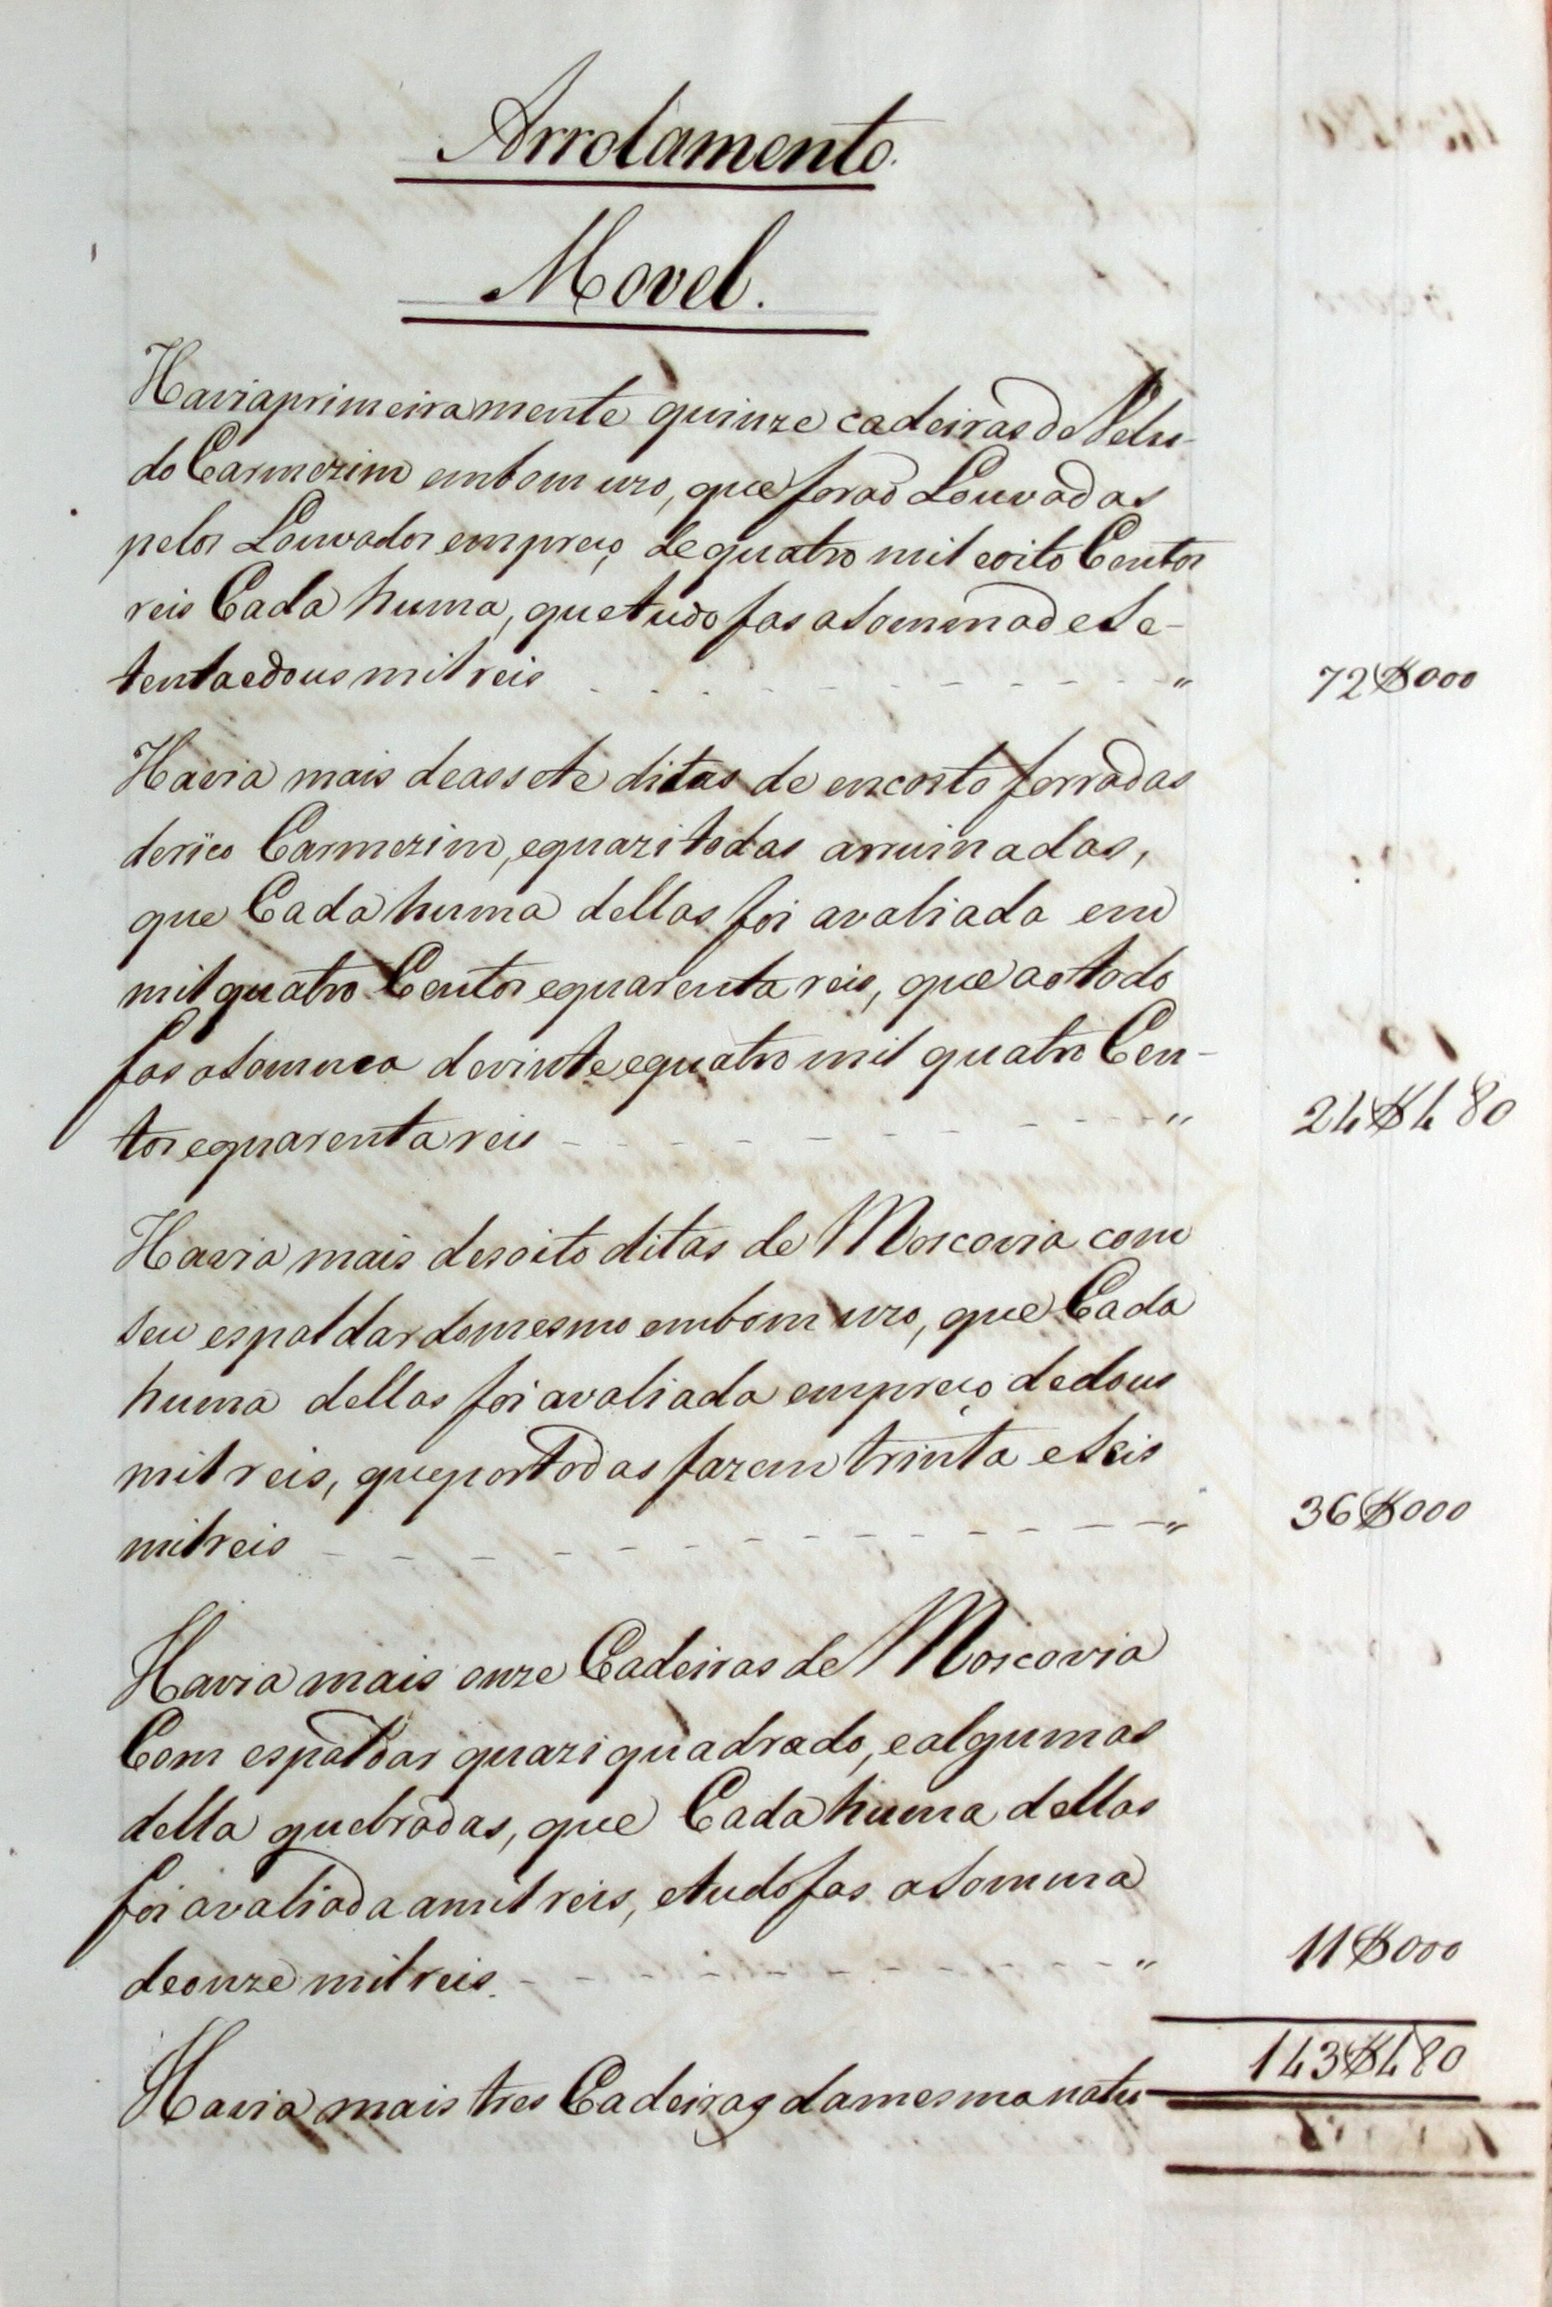 Arrolamento.
Movel.
Havia primeiramente quinze cadeiras de Velu-
do Carmezim em bom uzo, que foraõ Louvadas
pelos Louvados em preço de quatro mil e oito Centos
reis Cada huma, que tudo fas a Somma de Se-
tenta e dous mil reis " 72$000
Havia mais deassete ditas de encosto forradas
de riço Carmezim, e quazi todas arruinadas,
que Cada huma dellas foi avaliada em
mil quatro Centos e quarenta reis, que ao todo
fas a Somma de vinte e quatro mil quatro Cen-
tos e quarenta reis " 24$480
Havia mais desoito ditas de Moscovia com
seu espaldar do mesmo em bom uzo, que Cada
huma dellas foi avaliada em preço de dous
mil reis, que por todas fazem trinta e Seis
mil reis " 36$000
Havia mais onze Cadeiras de Moscovia
Com espaldar quazi quadrado, e algumas
della quebradas, que Cada huma dellas
foi avaliada a mil reis, e tudo fas a Somma
de onze mil reis. " 11$000
143$480
Havia mais tres Cadeiras da mesma natu-